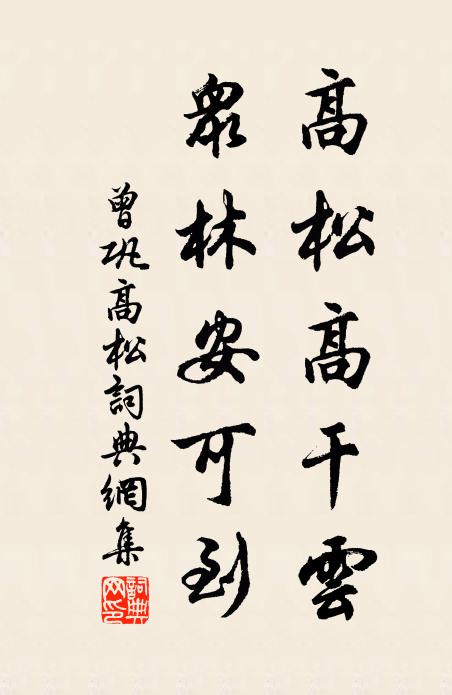 高松高干雲
眾林安可到
曾巩高松詞典網集
詞典
网印